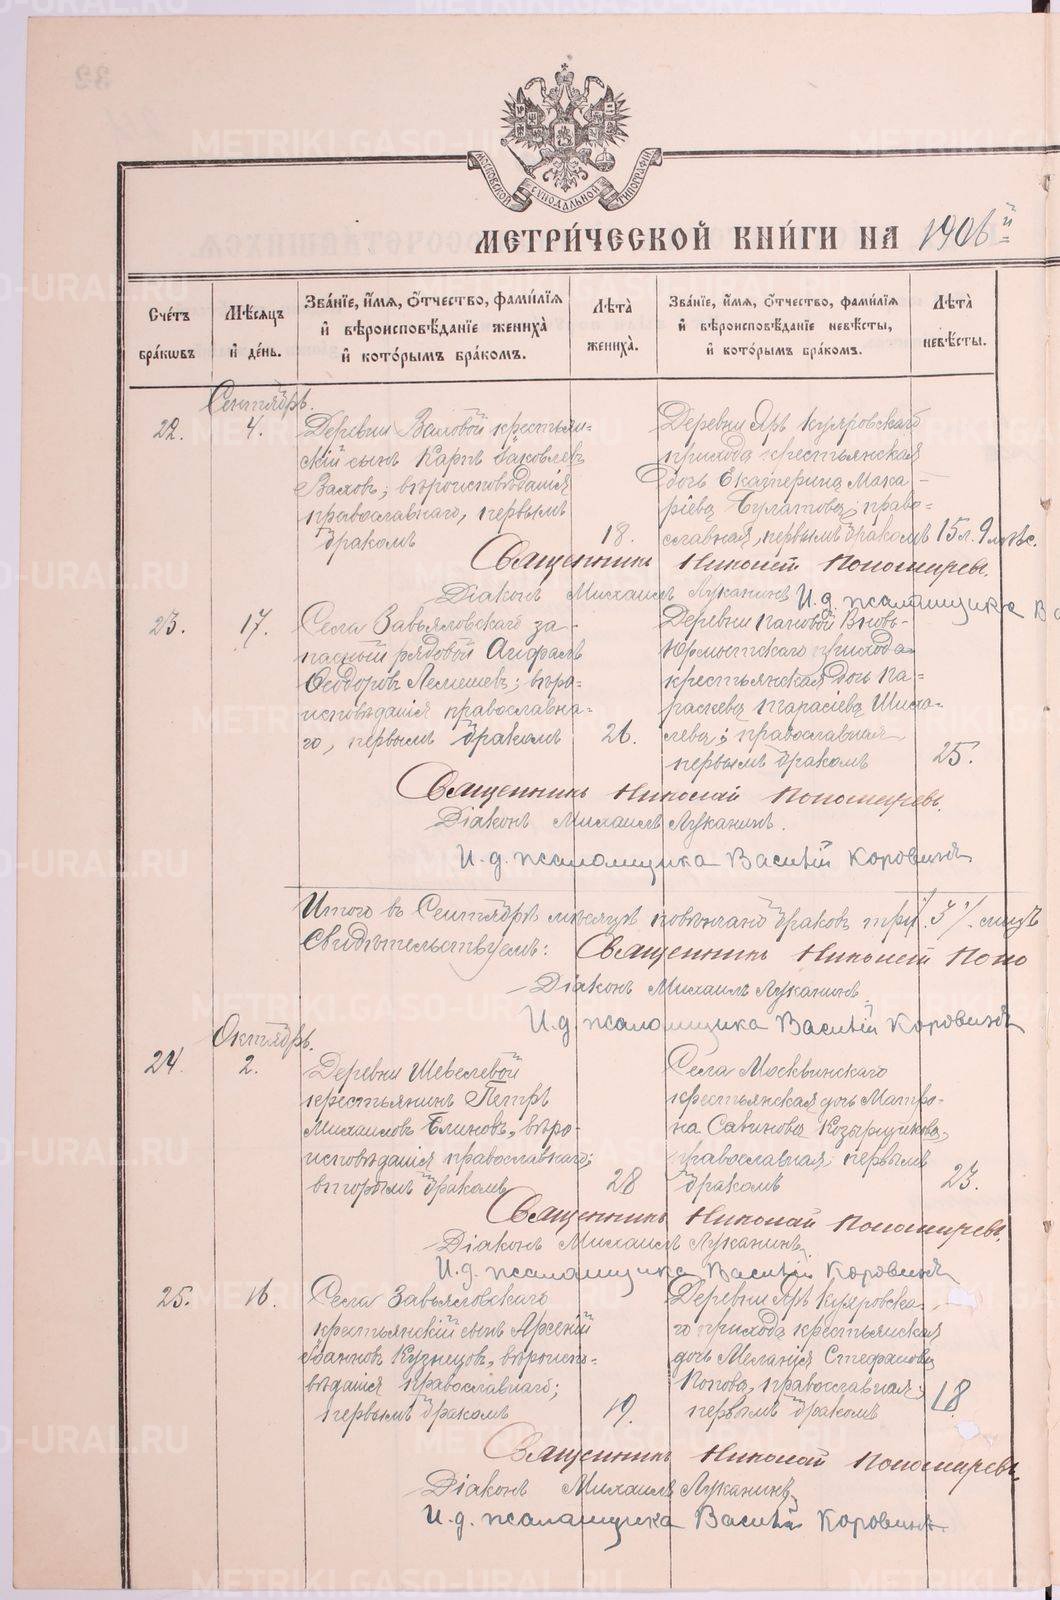 МОСКОВСКОЙ СѴНОДАЛЬНОЙ ТИПОГРАФІИ
МЕТРИ́ЧЕСКОЙ КНИ́ГИ НА 1906й
Сче́тъ бра́кωвъ
Мѣ́сяцъ и҆ де́нь.
Зва́нїе, и҆́мѧ, ѻ҆́тчество, фами́лїѧ и҆ вѣроисповѣ́данїе жениха̀ и҆ кото́рымъ бра́комъ.
Лѣ́та жениха̀.
Зва́нїе, и҆́мѧ, ѻ҆́тчество, фами́лїѧ и҆ вѣроисповѣ́данїе невѣ́сты, и҆ кото́рымъ бра́комъ.
Лѣ́та невѣ́сты.
Сентябрь.
22.
4.
Деревни Валовой крестьян-
скій сынъ Карпъ Іаковлевъ
Валовъ; вѣроисповѣданія
православнаго, первымъ
бракомъ
18.
Деревни Яръ Куяровскаго
прихода крестьянская
дочь Екатерина Мака-
ріева Булатова; право-
славная, первымъ бракомъ
15 л. 9 мѣс.
Священникъ Николай Пономаревъ.
Діаконъ Михаилъ Луканинъ
И. д. псаломщика Ва
23.
17.
Села Завьяловскаго за-
пасный рядовой
Ѳеодоровъ Лемешевъ; вѣро-
исповѣданія православна-
го, первымъ бракомъ
26.
Деревни Пановой Вновь-
Юрмытскаго прихода
крестьянская дочь Па-
раскева Тарасіева Шиха-
лева; православная
первымъ бракомъ
25.
Священникъ Николай Пономаревъ.
Діаконъ Михаилъ Луканинъ.
И. д. псаломщика Василій Коровинъ
Итого въ Сентябрѣ мѣсяцѣ повѣнчано браковъ три /3/.
Свидѣтельствуемъ: Священникъ Николай Поно
Діаконъ Михаилъ Луканинъ.
И. д. псаломщика Василій Коровинъ
Октябрь.
24.
2.
Деревни Шевелевой
крестьянинъ Петръ
Михаиловъ Блиновъ, вѣро-
исповѣданія православнаго;
вторымъ бракомъ
28
Села Москвинскаго
крестьянская дочь Матро-
на Савинова Козырщикова,
православная; первымъ
бракомъ
23.
Священникъ Николай Пономаревъ.
Діаконъ Михаилъ Луканинъ.
И. д. псаломщика Василій Коровинъ
25.
16.
Села Завьяловскаго
крестьянскій сынъ Арсеній
Іоанновъ Кузнецовъ, вѣроиспо-
вѣданія православнаго;
первымъ бракомъ
19.
Деревни Яръ Куяровска-
го прихода крестьянская
дочь Меланія Стефанова
Попова, православная;
первымъ бракомъ
18
Священникъ Николай Пономаревъ.
Діаконъ Михаилъ Луканинъ
И. д. псаломщика Василій Коровинъ.
METRIKI.GASO-URAL.RU